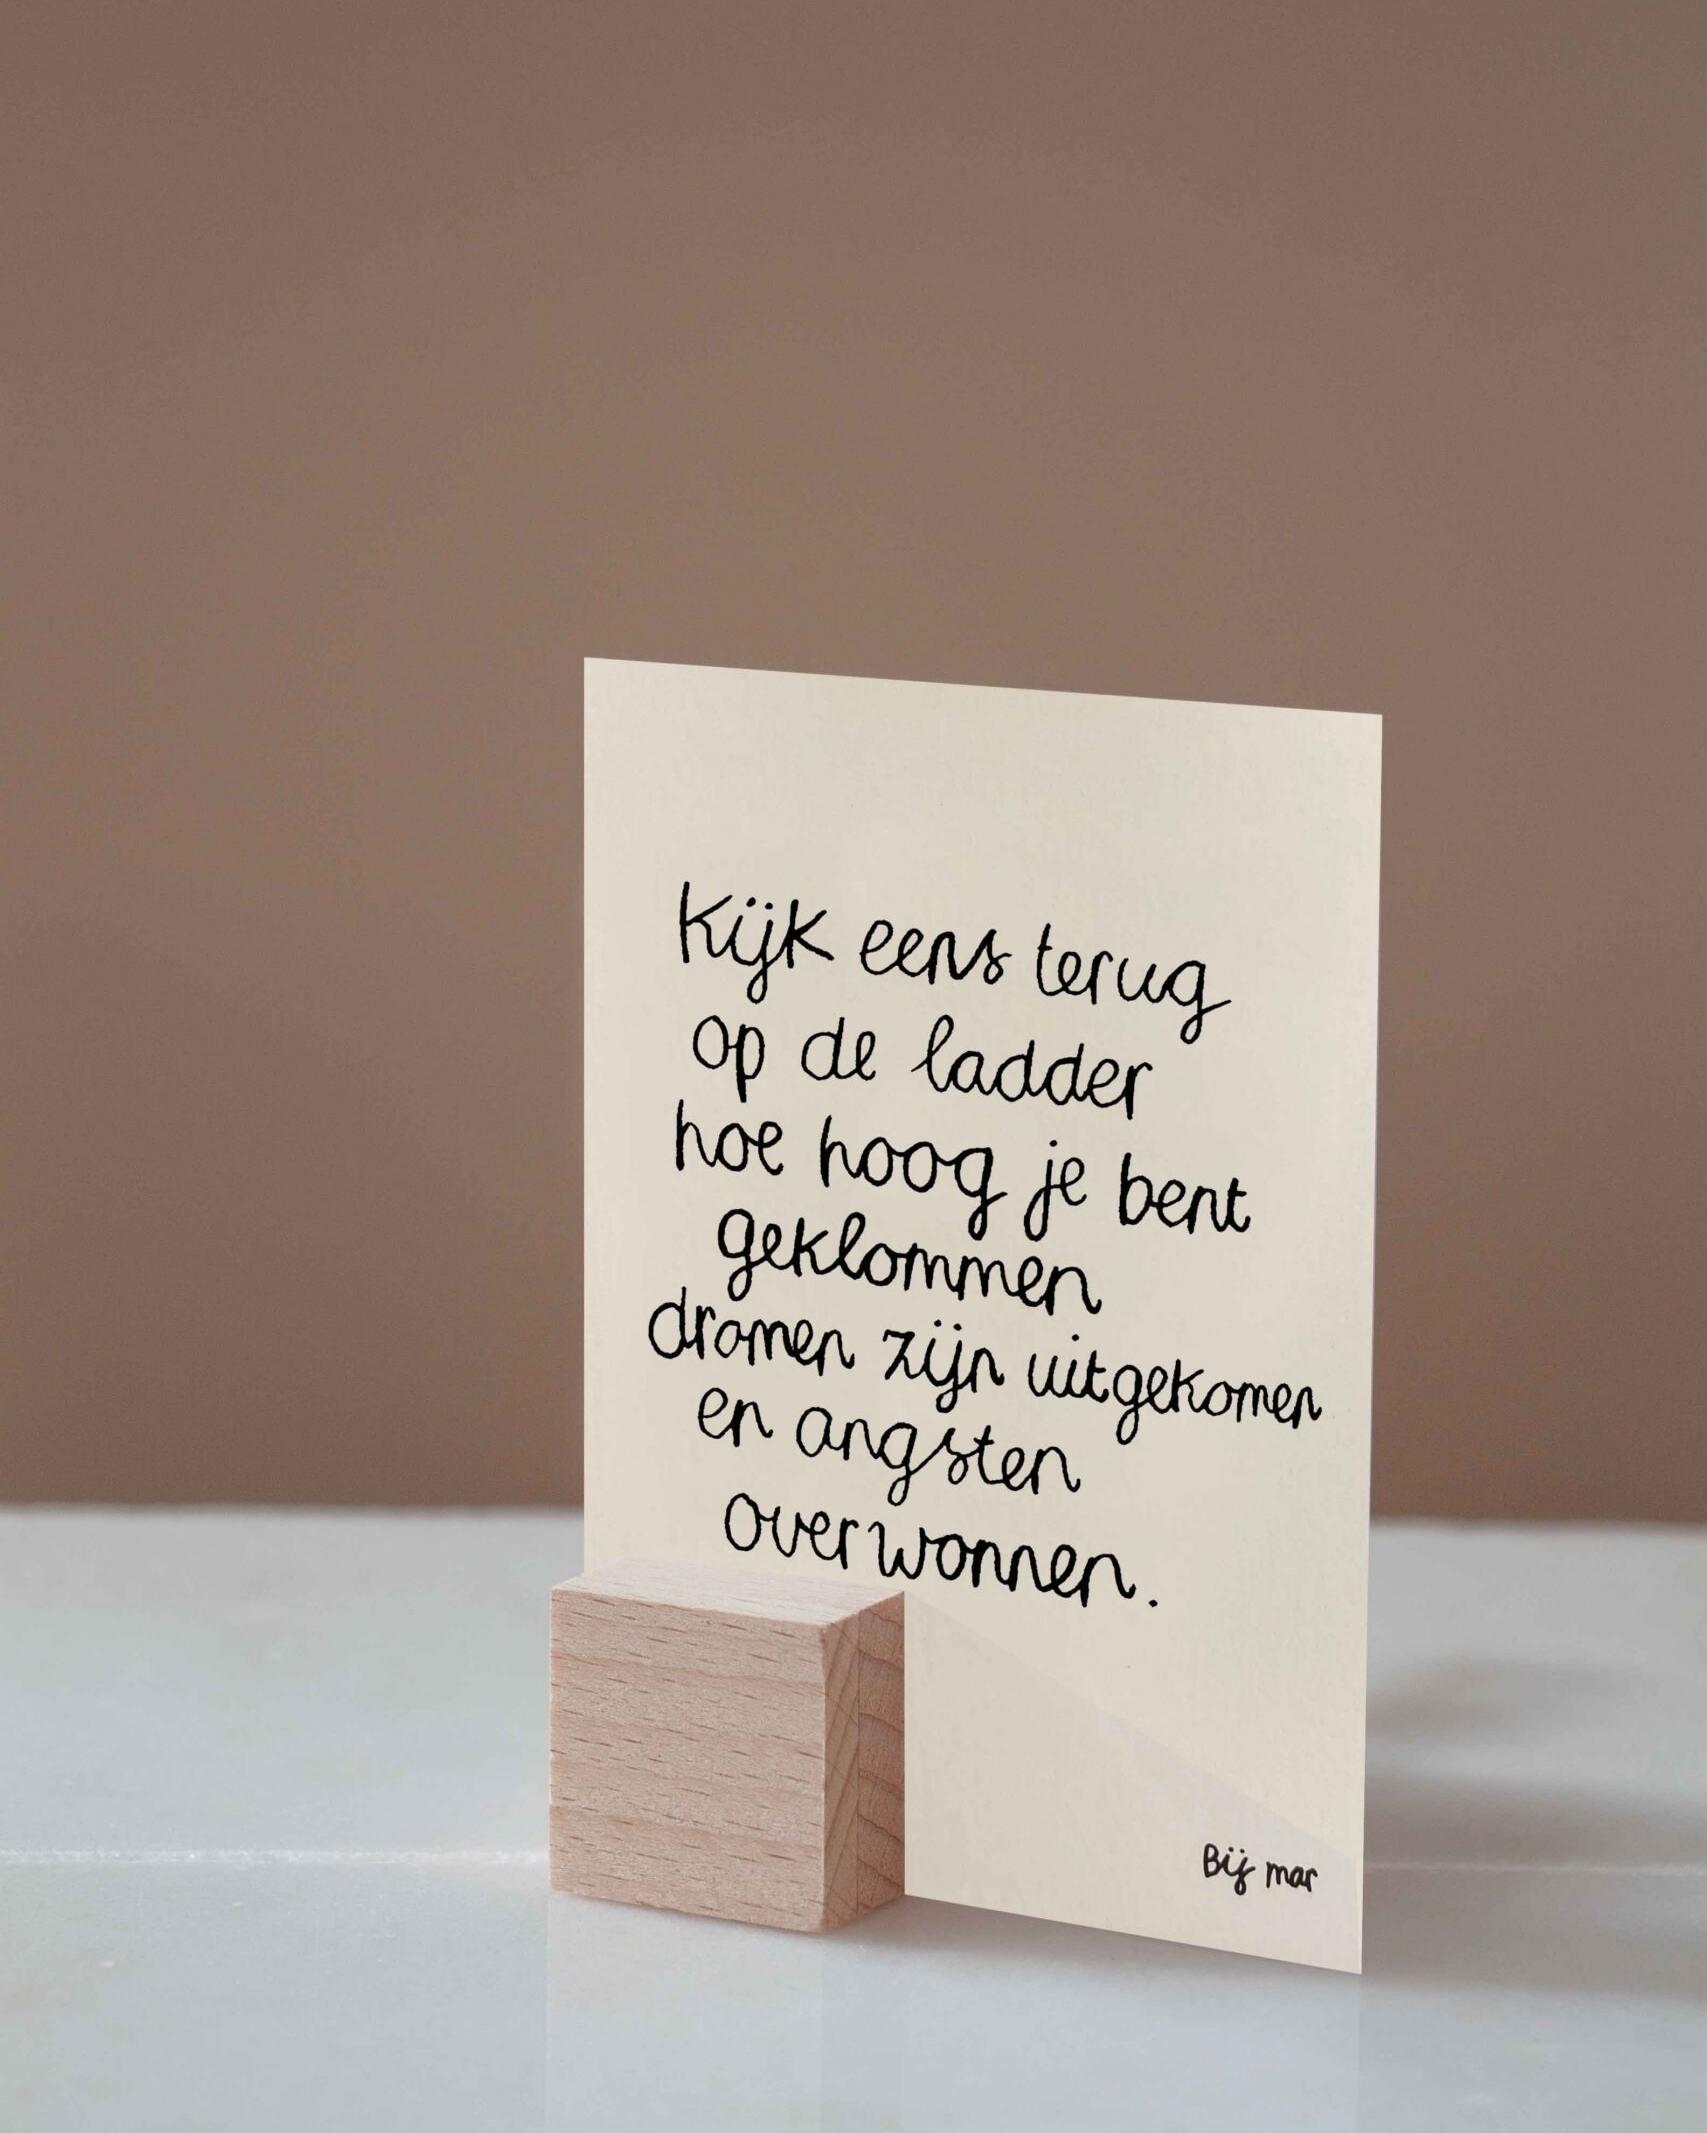 Kijk eens terug
op de ladder
hoe hoog je bent
geklommen
dromen zijn uitgekomen
en angsten
overwonnen.
Bij mar